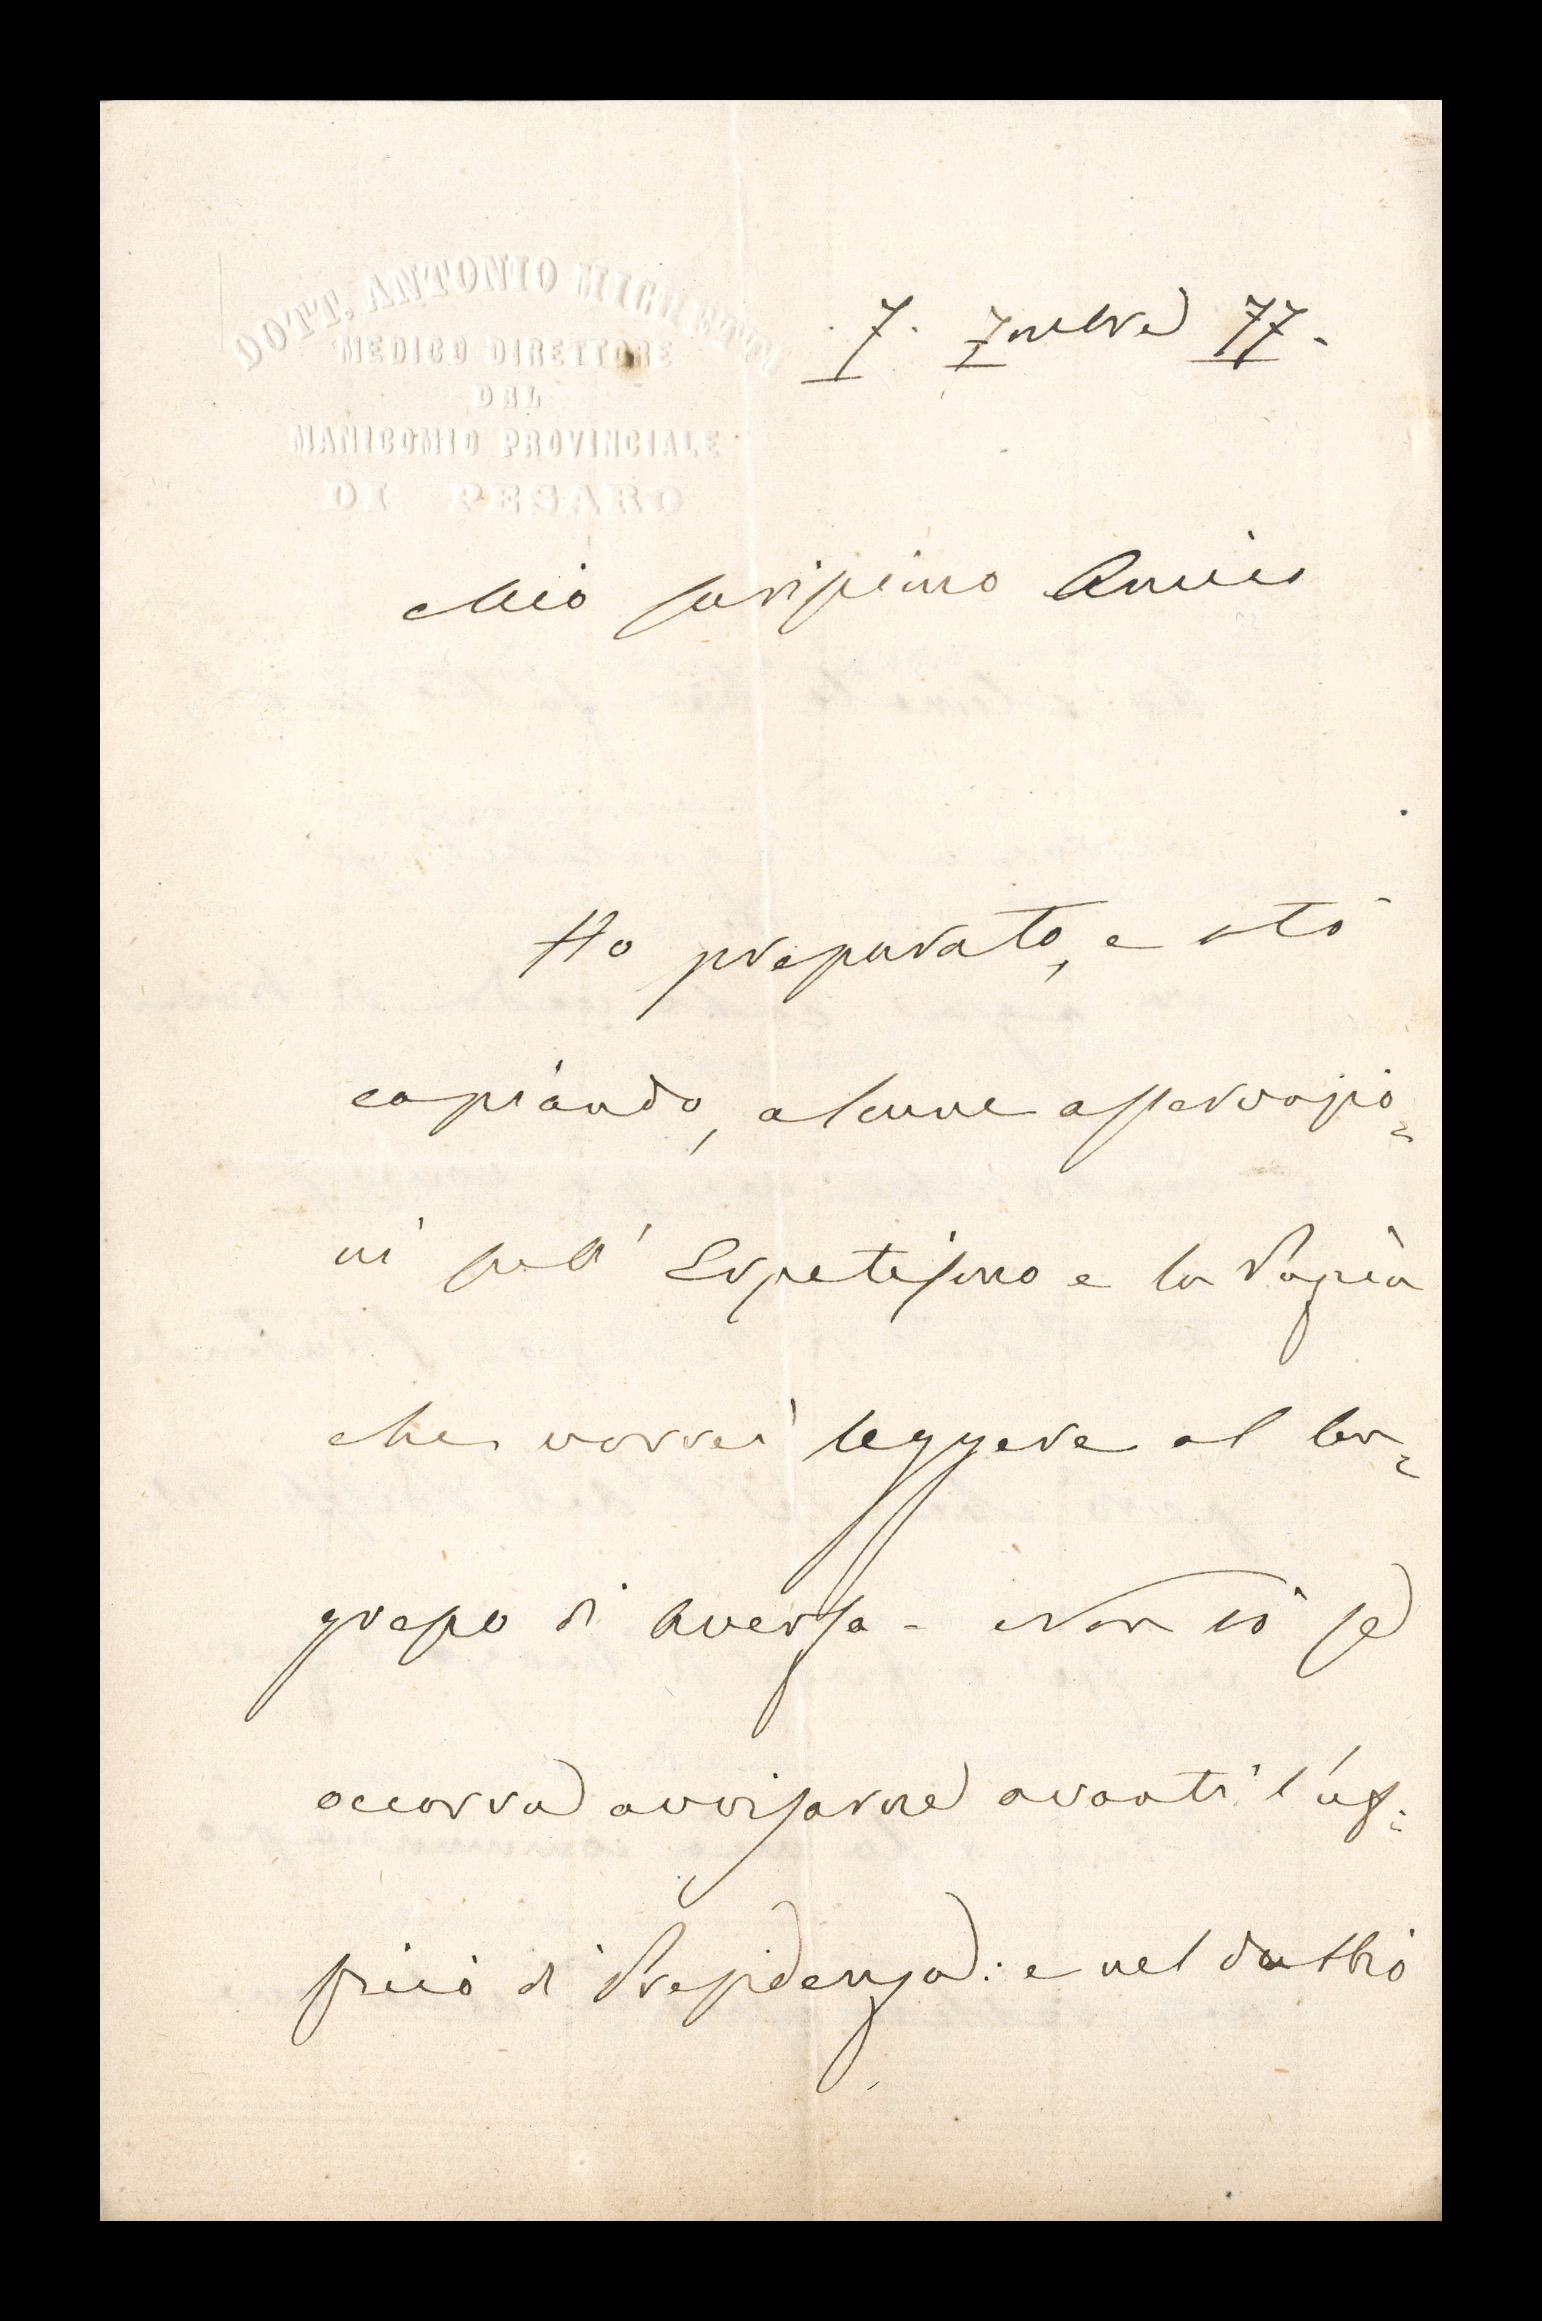 DOTT. ANTONIO MICHETTI
MEDICO DIRETTORE
DEL
MANICOMIO PROVINCIALE
DI PESARO
7. 7mbre 77.
Mio carissimo Amico
Ho preparato, e stò
copiando, alcune osservazio=
ni sull' Erpetismo e la Pazzia
che vorrei leggere al Con=
gresso di Aversa - Non sò se
occorra avvisarne avanti l'uf=
ficio di Presidenza: e nel dubbio